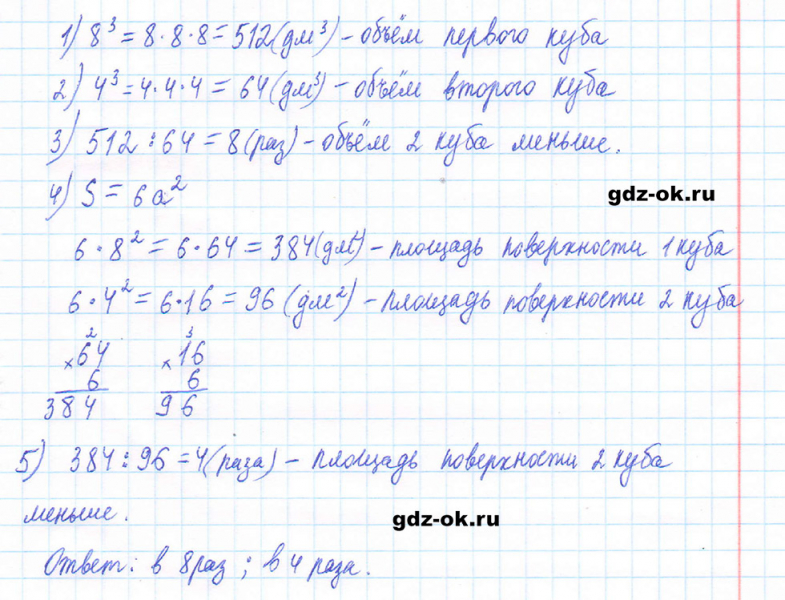 1) 8³ = 8·8·8 = 512 (дм³) – объём первого куба
2) 4³ = 4·4·4 = 64 (дм³) – объём второго куба
3) 512 : 64 = 8 (раз) – объём 2 куба меньше.
4) S = 6a²
gdz-ok.ru
6·8² = 6·64 = 384 (дм²) – площадь поверхности 1 куба
6·4² = 6·16 = 96 (дм²) – площадь поверхности 2 куба
2 3
×64 ×16
6 6
384 96
5) 384 : 96 = 4 (раза) – площадь поверхности 2 куба
меньше.
gdz-ok.ru
Ответ: в 8 раз ; в 4 раза.